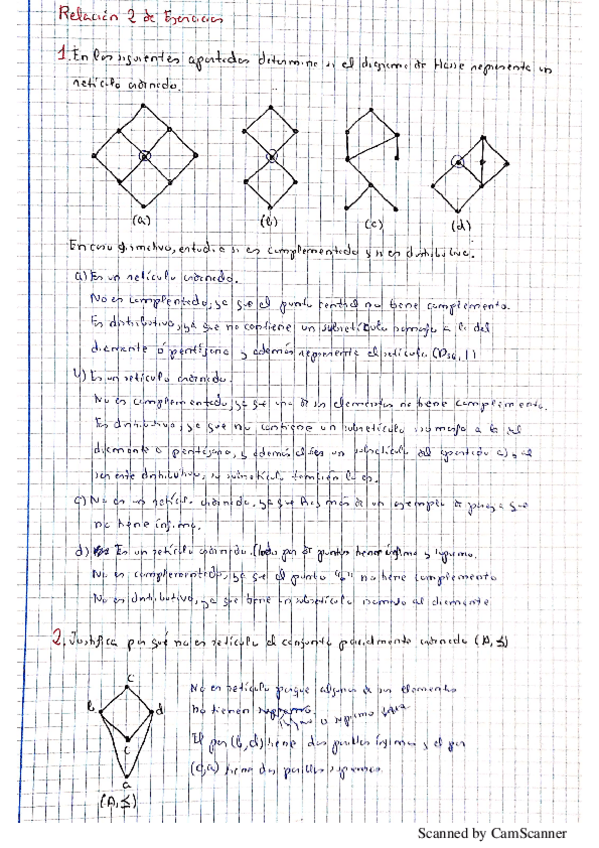 Relación 2 de Ejercicios
1. En los siguientes apartados determine si el diagrama de Hasse representa un
retículo ordenado.
(a) (b) (c) (d)
En caso afirmativo, estudia si es complementado y si es distributivo.
a) Es un retículo ordenado.
No es complentado, ya que el punto central no tiene complemento.
Es distributivo, ya que no contiene un subretículo isomorfo a la del
diamante o pentágono y además representa el retículo (D36, |)
b) Es un retículo ordenado.
No es complementado, ya que uno de sus elementos no tiene complemento.
Es distributivo, ya que no contiene un subretículo isomorfo a la del
diamante o pentágono, y además es un subretículo del apartado a), y al
ser este distributivo, su subretículo también lo es.
c) No es un retículo ordenado, ya que hay más de un ejemplo de pareja que
no tiene ínfimo.
d) Es un retículo ordenado. (todo par de puntos tiene ínfimo y supremo.
No es complementado, ya que el punto "b" no tiene complemento
No es distributivo, ya que tiene un subretículo isomorfo al diamante
2. Justifica por qué no es retículo el conjunto parcialmente ordenado (A, ≤)
c
b d
c
a
(A, ≤)
No es retículo porque alguno de sus elementos
no tienen
ínfimo o supremo
El par (b, d) tiene dos posibles ínfimos y el par
(c, a) tiene dos posibles supremos
Scanned by CamScanner